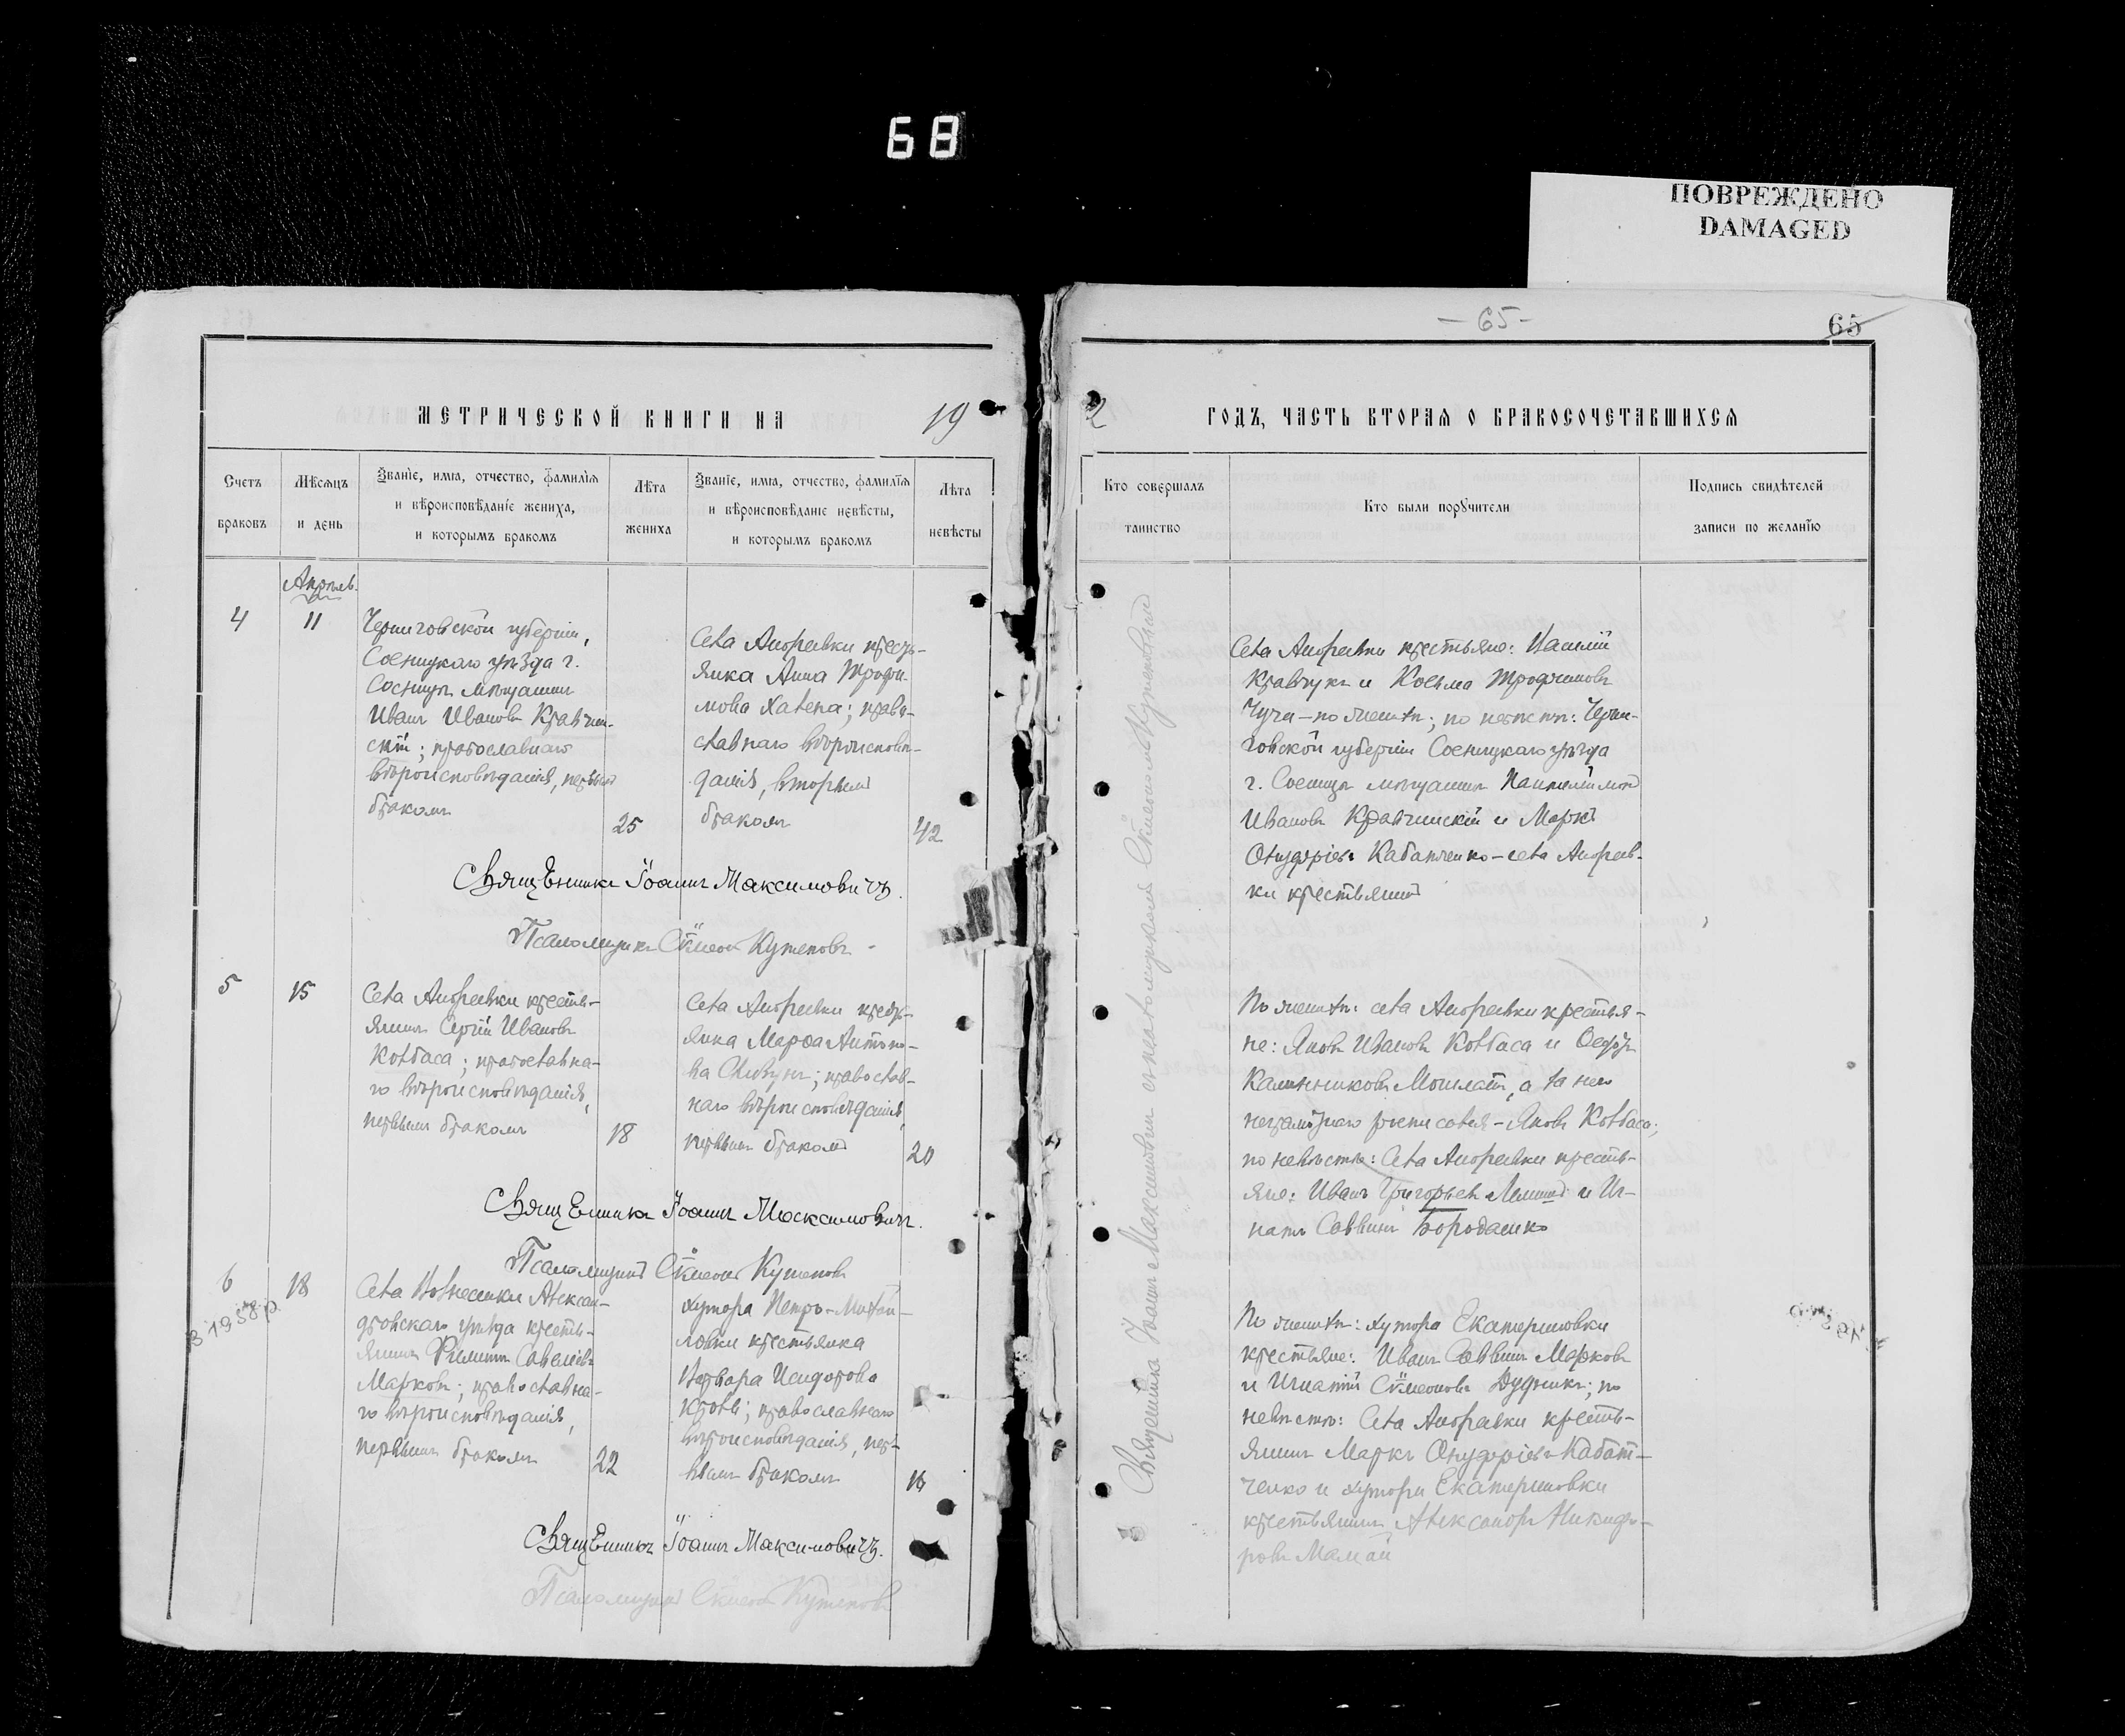 68
ПОВРЕЖДЕНО
DAMAGED
МЕТРИЧЕСКОЙ КНИГИ НА 19
Счетъ браковъ
Мѣсяцъ и день
Званіе, имя, отчество, фамилія и вѣроисповѣданіе жениха, и которымъ бракомъ
Лѣта жениха
Званіе, имя, отчество, фамилія и вѣроисповѣданіе невѣсты, и которымъ бракомъ
Лѣта невѣсты
Апрѣль
4
11
Черниговской губерніи,
Сосницкаго уѣзда г.
Сосницы мѣщанинъ
Иванъ Ивановъ Кравчин-
скій; православнаго
вѣроисповѣданія, первымъ
бракомъ
25
Села Андреевки кресть-
янка Анна Трофи-
мова; право-
славнаго вѣроисповѣ-
данія, вторымъ
бракомъ
42
Священникъ Іоаннъ Максимовичъ.
Псаломщикъ Сѵмеонъ Кутеповъ
5
15
Села Андреевки кресть-
янинъ Сергій Ивановъ
Ковбаса; православна-
го вѣроисповѣданія,
первымъ бракомъ
18
Села Андреевки кресть-
янка Марѳа Антоно-
ва; православ-
наго вѣроисповѣданія,
первымъ бракомъ
20
Священникъ Іоаннъ Максимовичъ.
Псаломщикъ Сѵмеонъ Кутеповъ
6
18
Села Вознесенки Алексан-
дровскаго уѣзда кресть-
янинъ Филиппъ Савеліевъ
Марковъ; православна-
го вѣроисповѣданія,
первымъ бракомъ
22
Хутора Петро-Михай-
ловки крестьянка
Варвара Исидорова
Кроль; православнаго
вѣроисповѣданія, пер-
вымъ бракомъ
16
Священникъ Іоаннъ Максимовичъ.
Псаломщикъ Сѵмеонъ Кутеповъ
- 65 -
65
2 ГОДЪ, ЧАСТЬ ВТОРАЯ О БРАКОСОЧЕТАВШИХСЯ
Кто совершалъ таинство
Кто были поручители
Подпись свидѣтелей записи по желанію
Священникъ Іоаннъ Максимовичъ съ псаломщикомъ Сѵмеономъ Кутеповымъ
Села Андреевки крестьяне: Василій
Кравчукъ и Косьма Трофимовъ
по женихѣ; по невѣстѣ: Черни-
говской губерніи Сосницкаго уѣзда
г. Сосницы мѣщанинъ Пантелеимонъ
Ивановъ Кравчинскій и Маркъ
Онуфріевъ Кабатченко - села Андреев-
ки крестьянинъ
По женихѣ: села Андреевки крестья-
не: Яковъ Ивановъ Ковбаса и Ѳедоръ
а за него
неграмотнаго росписался - Яковъ Ковбаса;
по невѣстѣ: Села Андреевки кресть-
яне: Иванъ Григорьевъ и Иг-
натъ Саввинъ Бородашко
По женихѣ: хутора Екатериновки
крестьяне: Иванъ Саввинъ Марковъ
и Игнатій Сѵмеоновъ Дудникъ; по
невѣстѣ: Села Андреевки кресть-
янинъ Маркъ Онуфріевъ Кабат-
ченко и хутора Екатериновки
крестьянинъ Александръ Никифо-
ровъ Мамай